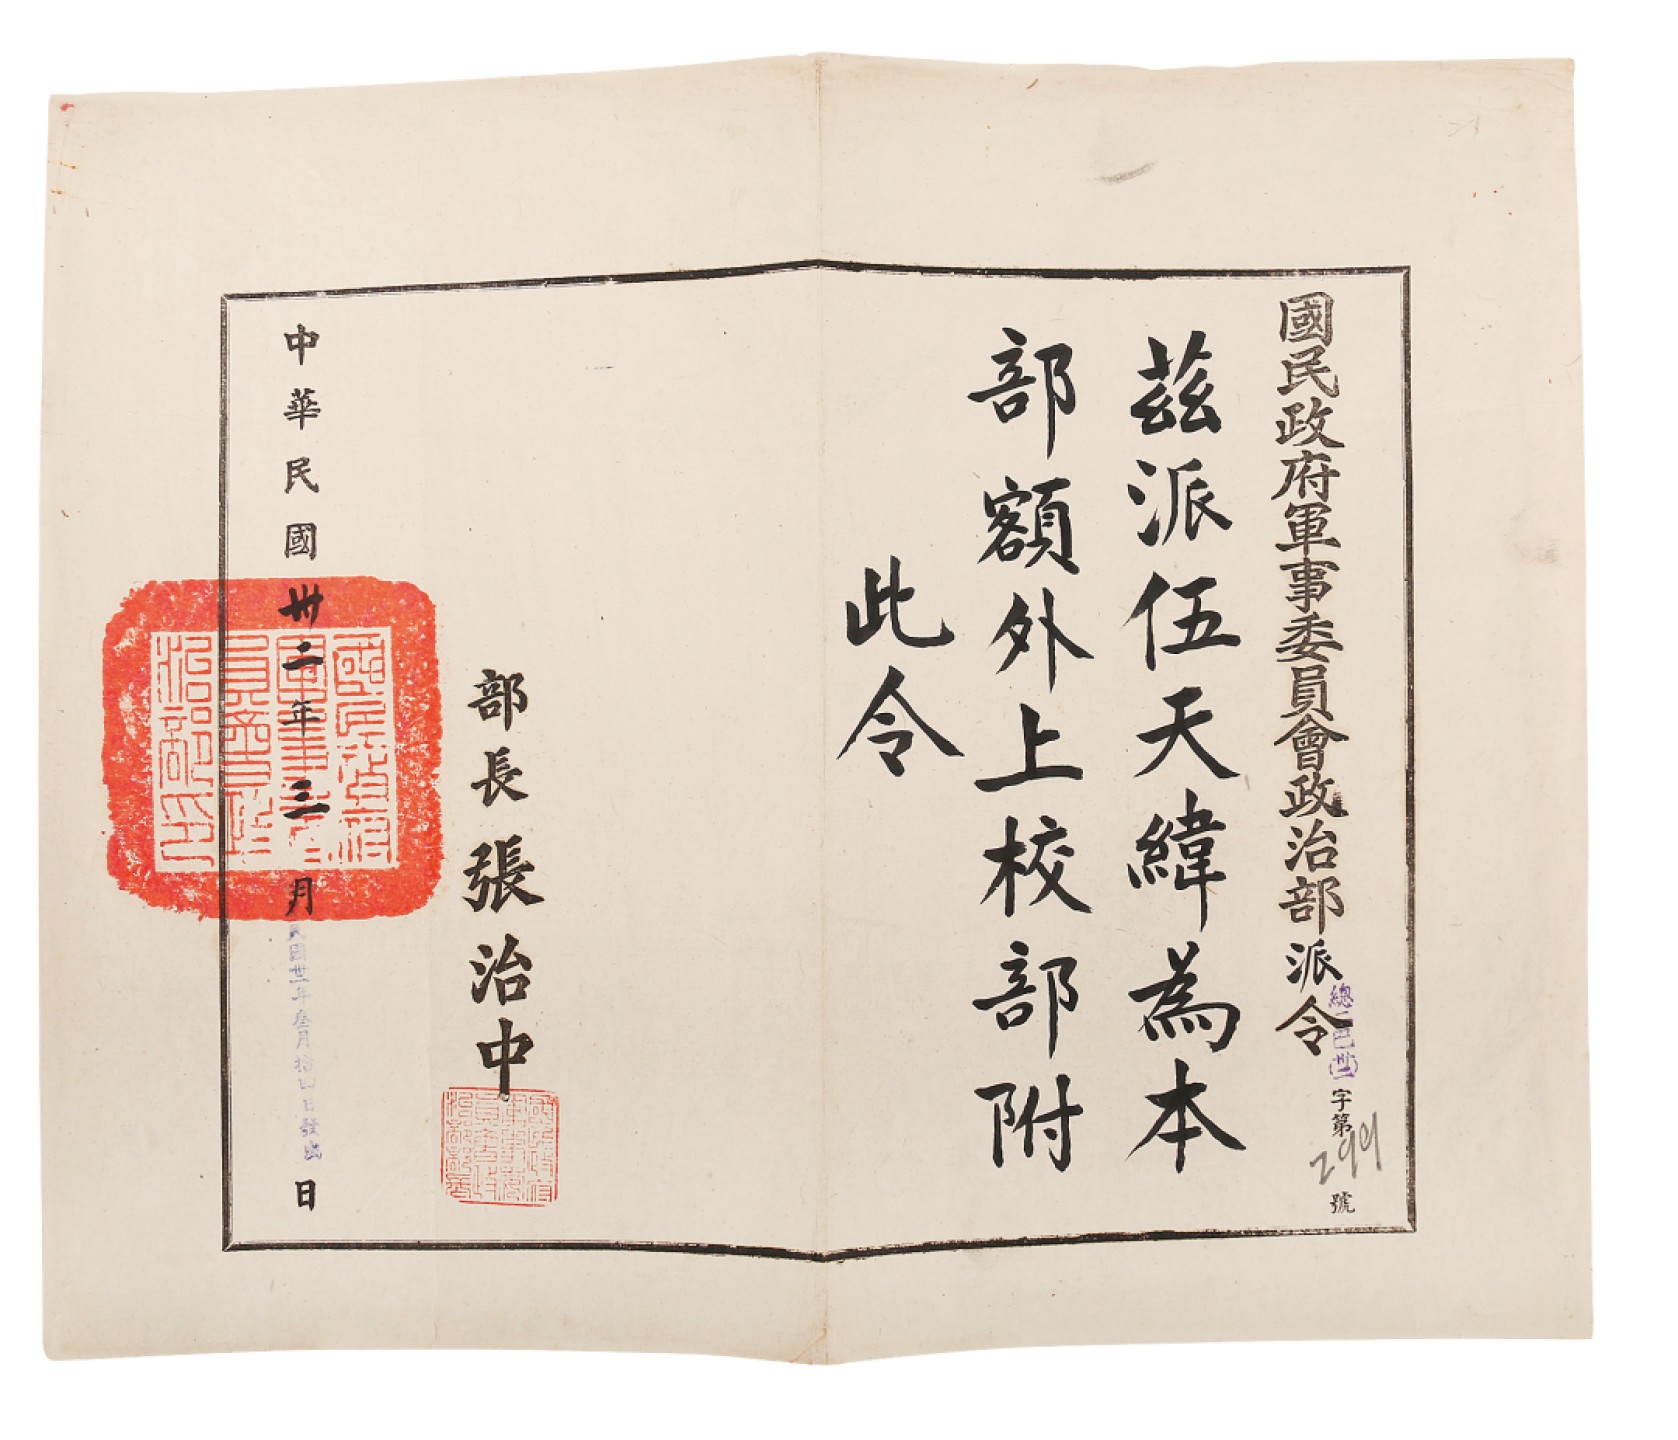 國民政府軍事委員會政治部派令
總二巴卅二字第299號
茲派伍天緯為本
部額外上校部附
此令
部長張治中
中華民國卅二年三月日
民國卅二年叁月拾四日發出
國民政府軍事委員會政治部印